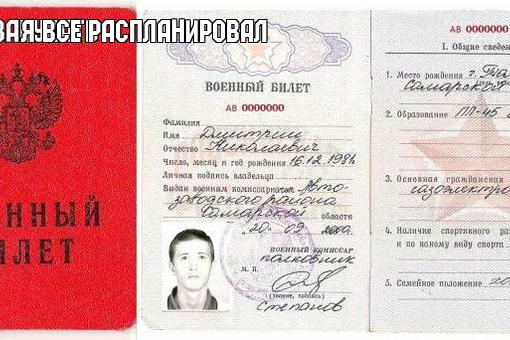 ВАЯ ВСЕ РАСПЛАНИРОВАЛ
ЕННЫЙ
ИЛЕТ
ВОЕННЫЙ БИЛЕТ
АВ 0000000
Фамилия
Имя Дмитрий
Отчество Николаевич
Число, месяц и год рождения 16.12.198
Личная подпись владельца
Выдан военным комиссариатом Авто-
заводского района
Самарской области
20 09
ВОЕННЫЙ КОМИССАР
полковник
М. П.
(звание, подпись)
Степанов
АВ 0000000
I. Общие сведе
1. Место рождения г.
Самарской
2. Образование ПЛ-45
3. Основная гражданская
газоэлектро
4. Наличие спортивного раз
и по какому виду спорта
5. Семейное положение хо